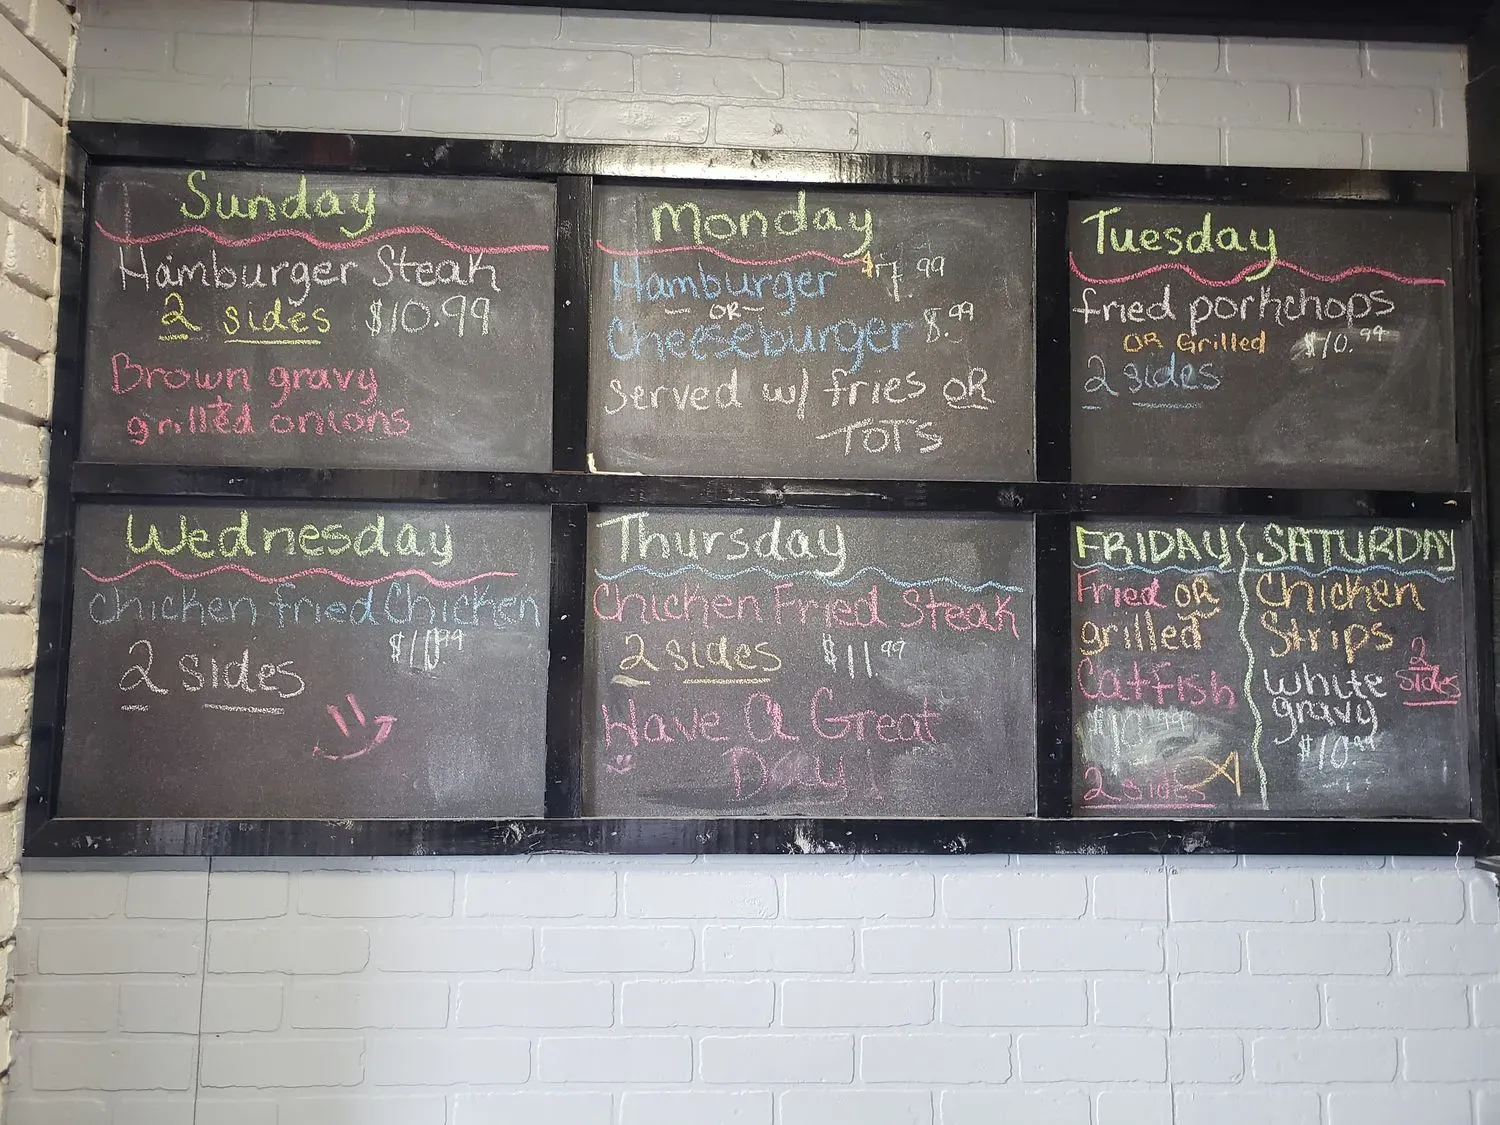 Sunday
Hamburger Steak
2 sides $10.99
Brown gravy
grilled onions
Monday
Hamburger $7.99
OR
Cheeseburger 8.99
served w/ fries OR
TOTS
Tuesday
fried porkchops
OR Grilled $10.99
2 sides
Wednesday
chicken fried Chicken
$10.99
2 sides
Thursday
Chicken Fried Steak
2 sides $11.99
Have A Great
Day!
FRIDAY
Fried OR
grilled
Catfish
$10.99
2 sides
SATURDAY
Chicken
Strips
2
White sides
gravy
$10.99